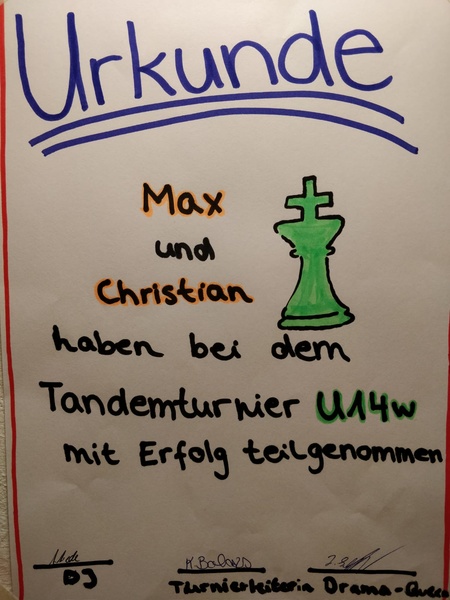 Urkunde
Max
und
Christian
haben bei dem
Tandemturnier U14w
mit Erfolg teilgenommen
DJ
Turnierleiterin Drama-Queen